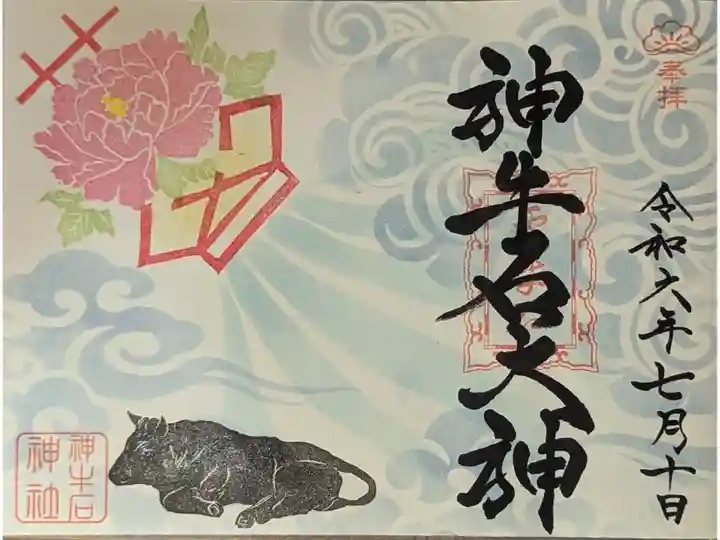 奉拝
令和六年七月十日
神牛石大神
神牛石
神社